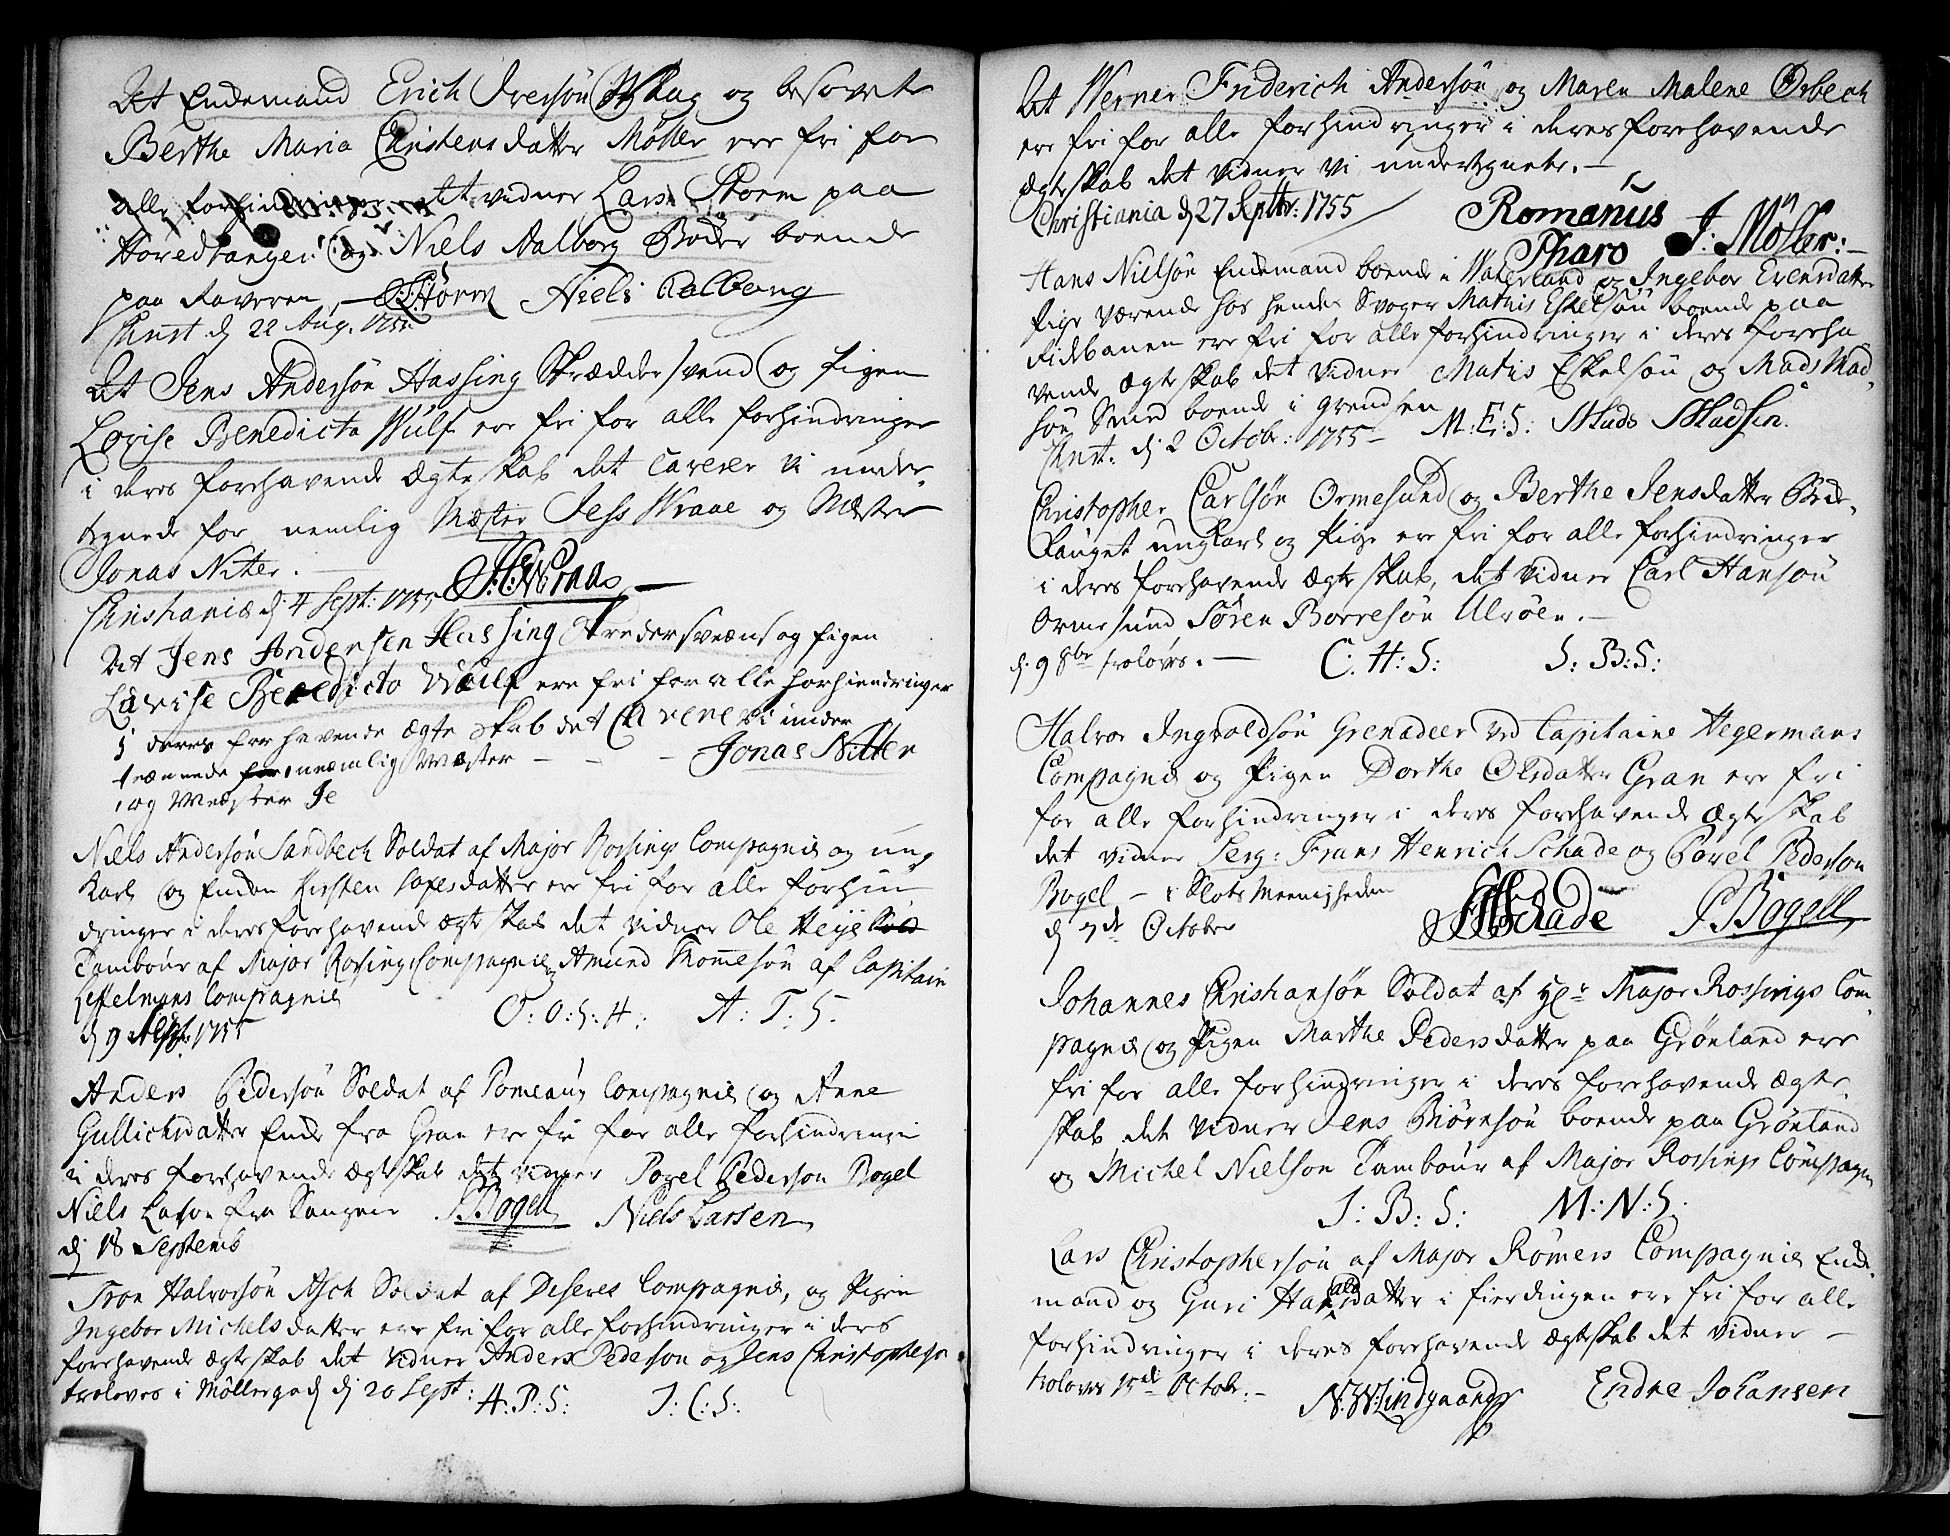 At Enckemand Erich Iversøn Skug og besovede
Berthe Maria Christensdatter Møller ere fri for
alle forhindringer det vidner Lars Storm paa
Hovedtangen og Niels Aalborg Bøder boende
paa Ravnen, LStorm Niels Aalborg
Christ. d 22 Aug. 1755
At Jens Andersøn Hassing Skrædder svend og pigen
Lovise Benedicta Wulf ere fri for alle forhindringer
i deres forehavende Ægteskab det Caverer vi under-
tegnede for nemlig Mester Jess Wraae og Mester
Jonas Niter.
Christiania d. 4 Sept: 1755
At Jens Andersen Hassing Skreder svens og pigen
Lavise Benedicto Wulf ere fri for alle forhiendringer
i deres forhavende ægte skab det Caverer vi under
tæennede for næmlig Mæster - - - Jonas Nitter
og Mæster Je
Niels Andersøn Sandbech Soldat af Major Rossings Compagnie og ung
Karl og Enken Kirsten datter ere fri for alle forhin
dringer i deres forehavende ægteskab det vidner Ole Heye Sold
Tambour af Major Rossings Compagnie og Amund Tommesøn af Capitain
Leffelmans Compagnie
d 9 Sept. 1755 O: O: S: H: A: T: S.
Anders Pedersøn Soldat af Pomeaus Compagnie og Anne
Gullichsdatter Enke fra Gran ere fri for alle forhindringer
i deres forehavende ægteskab det vidner Povel Pederson Bogel
Niels Larson fra Sangner P. Bogell Niels Larsen
d 18 Septemb
Tron Halvorsøn Asch Soldat af Deseves Compagnie, og Pigen
Ingebor Michelsdatter ere fri for alle forhindringer i deres
forehavende ægteskab det vidner Anders Pedersøn og Jens Christophersø
troloves i Møllergad d 20 Sept: A: P: S: J: C: S:
At Werner Friderich Andersøn og Maren Malene Orbech
ere fri for alle forhindringer i deres forehavende
ægteskab det vidner vi undertegnede.-
Christiania d 27 Septbr: 1755 Romanus J: Møller:
Pharo
Hans Nielsøn Enckemand boende i Waterland og Ingebor Evensdatter
pige værende hos hendes Svoger Mathis Eskelsøn boende paa
Ridebanen ere fri for alle forhindringer i deres foreha
vende Ægteskab det vidner Mathis Eskelsøn og Mads Mad-
søn Smed boende i Grendsen
Christ: d 2 Octobr: 1755 M: E: S: Mads Madsen.
Christopher Carlsøn Ormesund og Berthe Jensdatter Bred-
Ranget ungkarl og Pige ere fri for alle forhindringer
i deres forehavende ægteskab, det vidner Carl Hansøn
Ormesund Søren Borresøn Ulvøen.-
d. 9 8br troloves.- C: H: S: S: B: S:
Halvor Ingvoldsøn Grenadeer ved Capitaine Hegermans
Compagnie og Pigen Dorthe Olsdatter Gran ere fri
for alle forhindringer i deres forehavende Ægteskab
det vidner Serg: Frans Henrich Schade og Povel Pederson
Bogel - i Slots Meenigheden
d 7de October FHSchade P Bogell
Johannes Christiansøn Soldat af Hr Major Rossings Com-
pagnie og Pigen Marthe Pedersdatter paa Grønland ere
fri for alle forhindringer i deres forehavende ægte-
skab det vidner Jens Biørnsøn boende paa Grønland
og Michel Nielson Tambour af Major Rossings Compagn
J: B: S: M: N: S.
Lars Christophersøn af Major Romers Compagnie Encke-
mand og Guri Haralsdatter i fierdingen ere fri for alle
forhindringer i deres forehavende ægteskab det vidner -
troloves 15de Octobr.- N: W: Lindgaard Endre Johansen